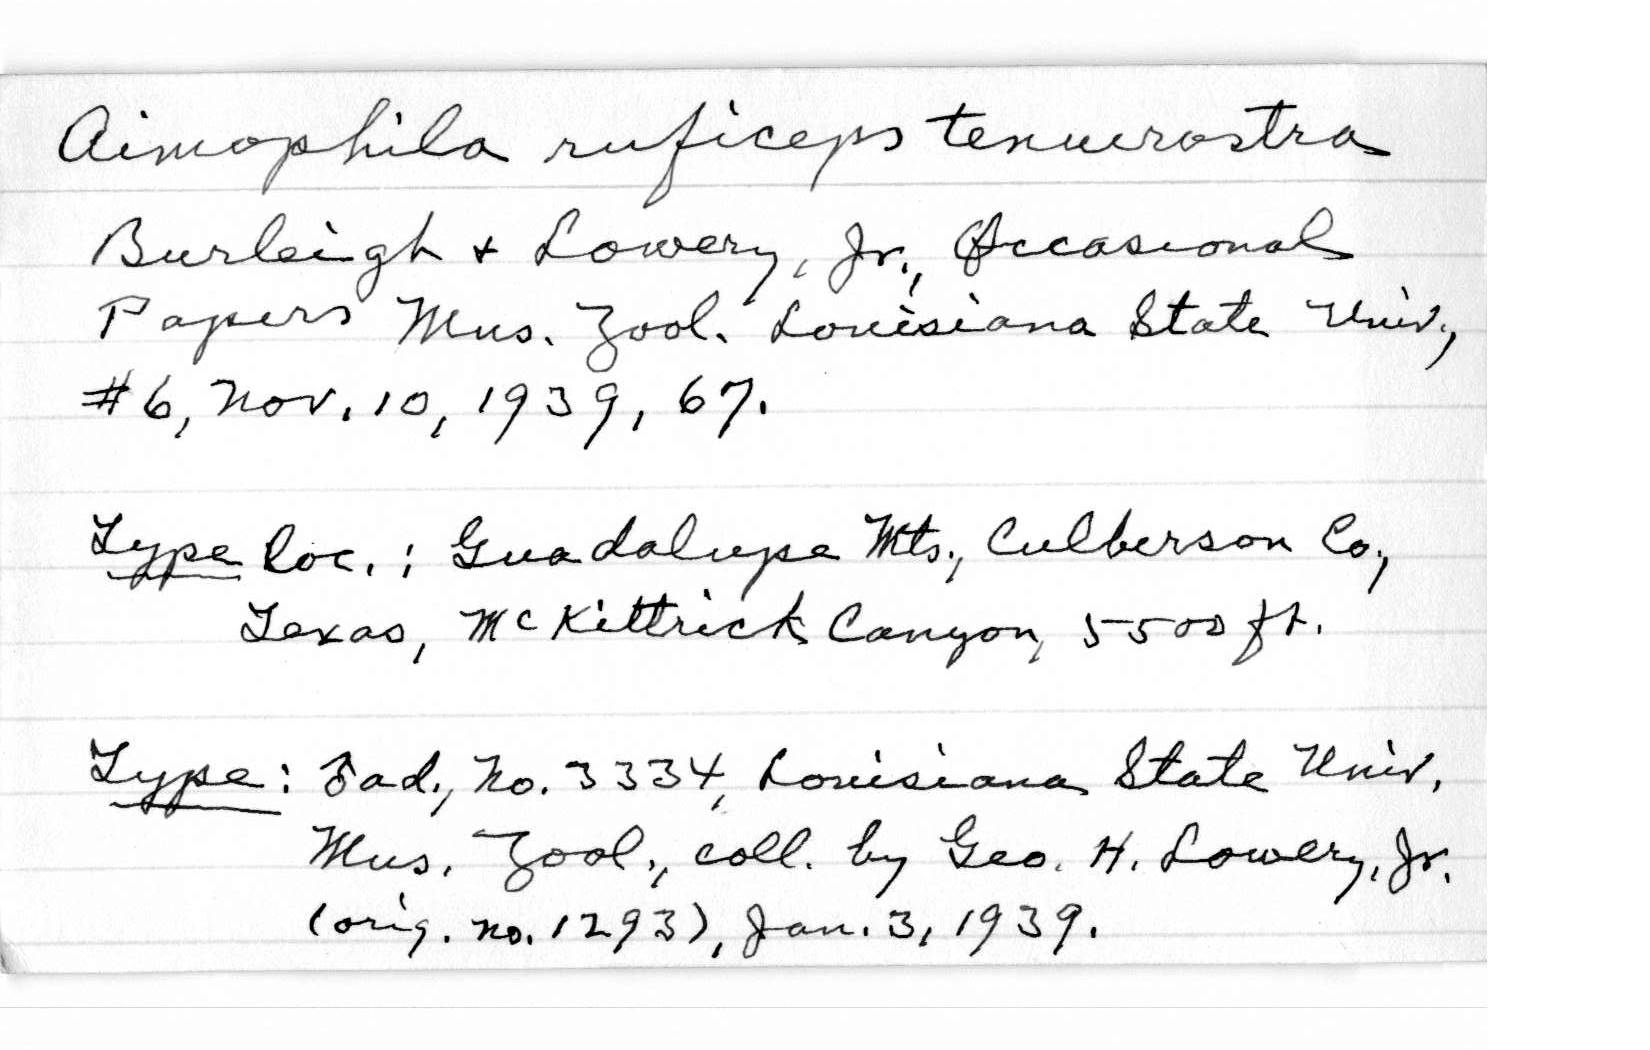 Aimophila ruficeps tenuirostra
Burleigh + Lowery, Jr., Occasional
Papers Mus. Zool. Louisiana State Univ.,
#6, Nov. 10, 1939, 67.
Type loc.: Guadalupe Mts., Culberson Co.,
Texas, McKittrick Canyon, 5500 ft.
Type: ♂ ad., no. 3334, Louisiana State Univ.
Mus. Zool., coll. by Geo. H. Lowery, Jr.
(orig. no. 1293), Jan. 3, 1939.